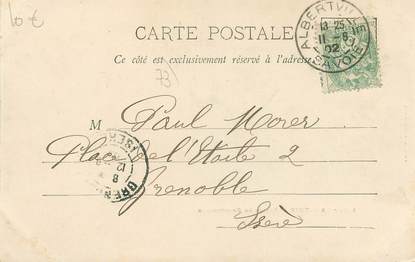 10 €
CARTE POSTALE
Ce côté est exclusivement réservé à l'adresse
73)
ALBERTVILLE
13 25
11 - 8
02
SAVOIE
M Paul Morer
Place de l'Etoile 2
Grenoble
Isère
ISERE
12
8
GREN